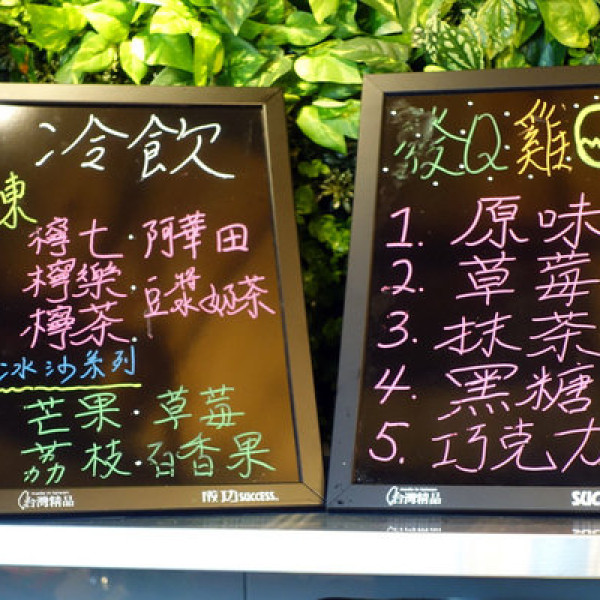 冷飲
東
檸七·阿華田
檸樂·豆漿奶茶
檸茶·
冰沙系列
芒果·草莓
荔枝·百香果
台灣精品
成功 SUCCESS.
發Q雞
1. 原味
2. 草莓
3. 抹茶
4. 黑糖
5. 巧克力
台灣精品
SUC